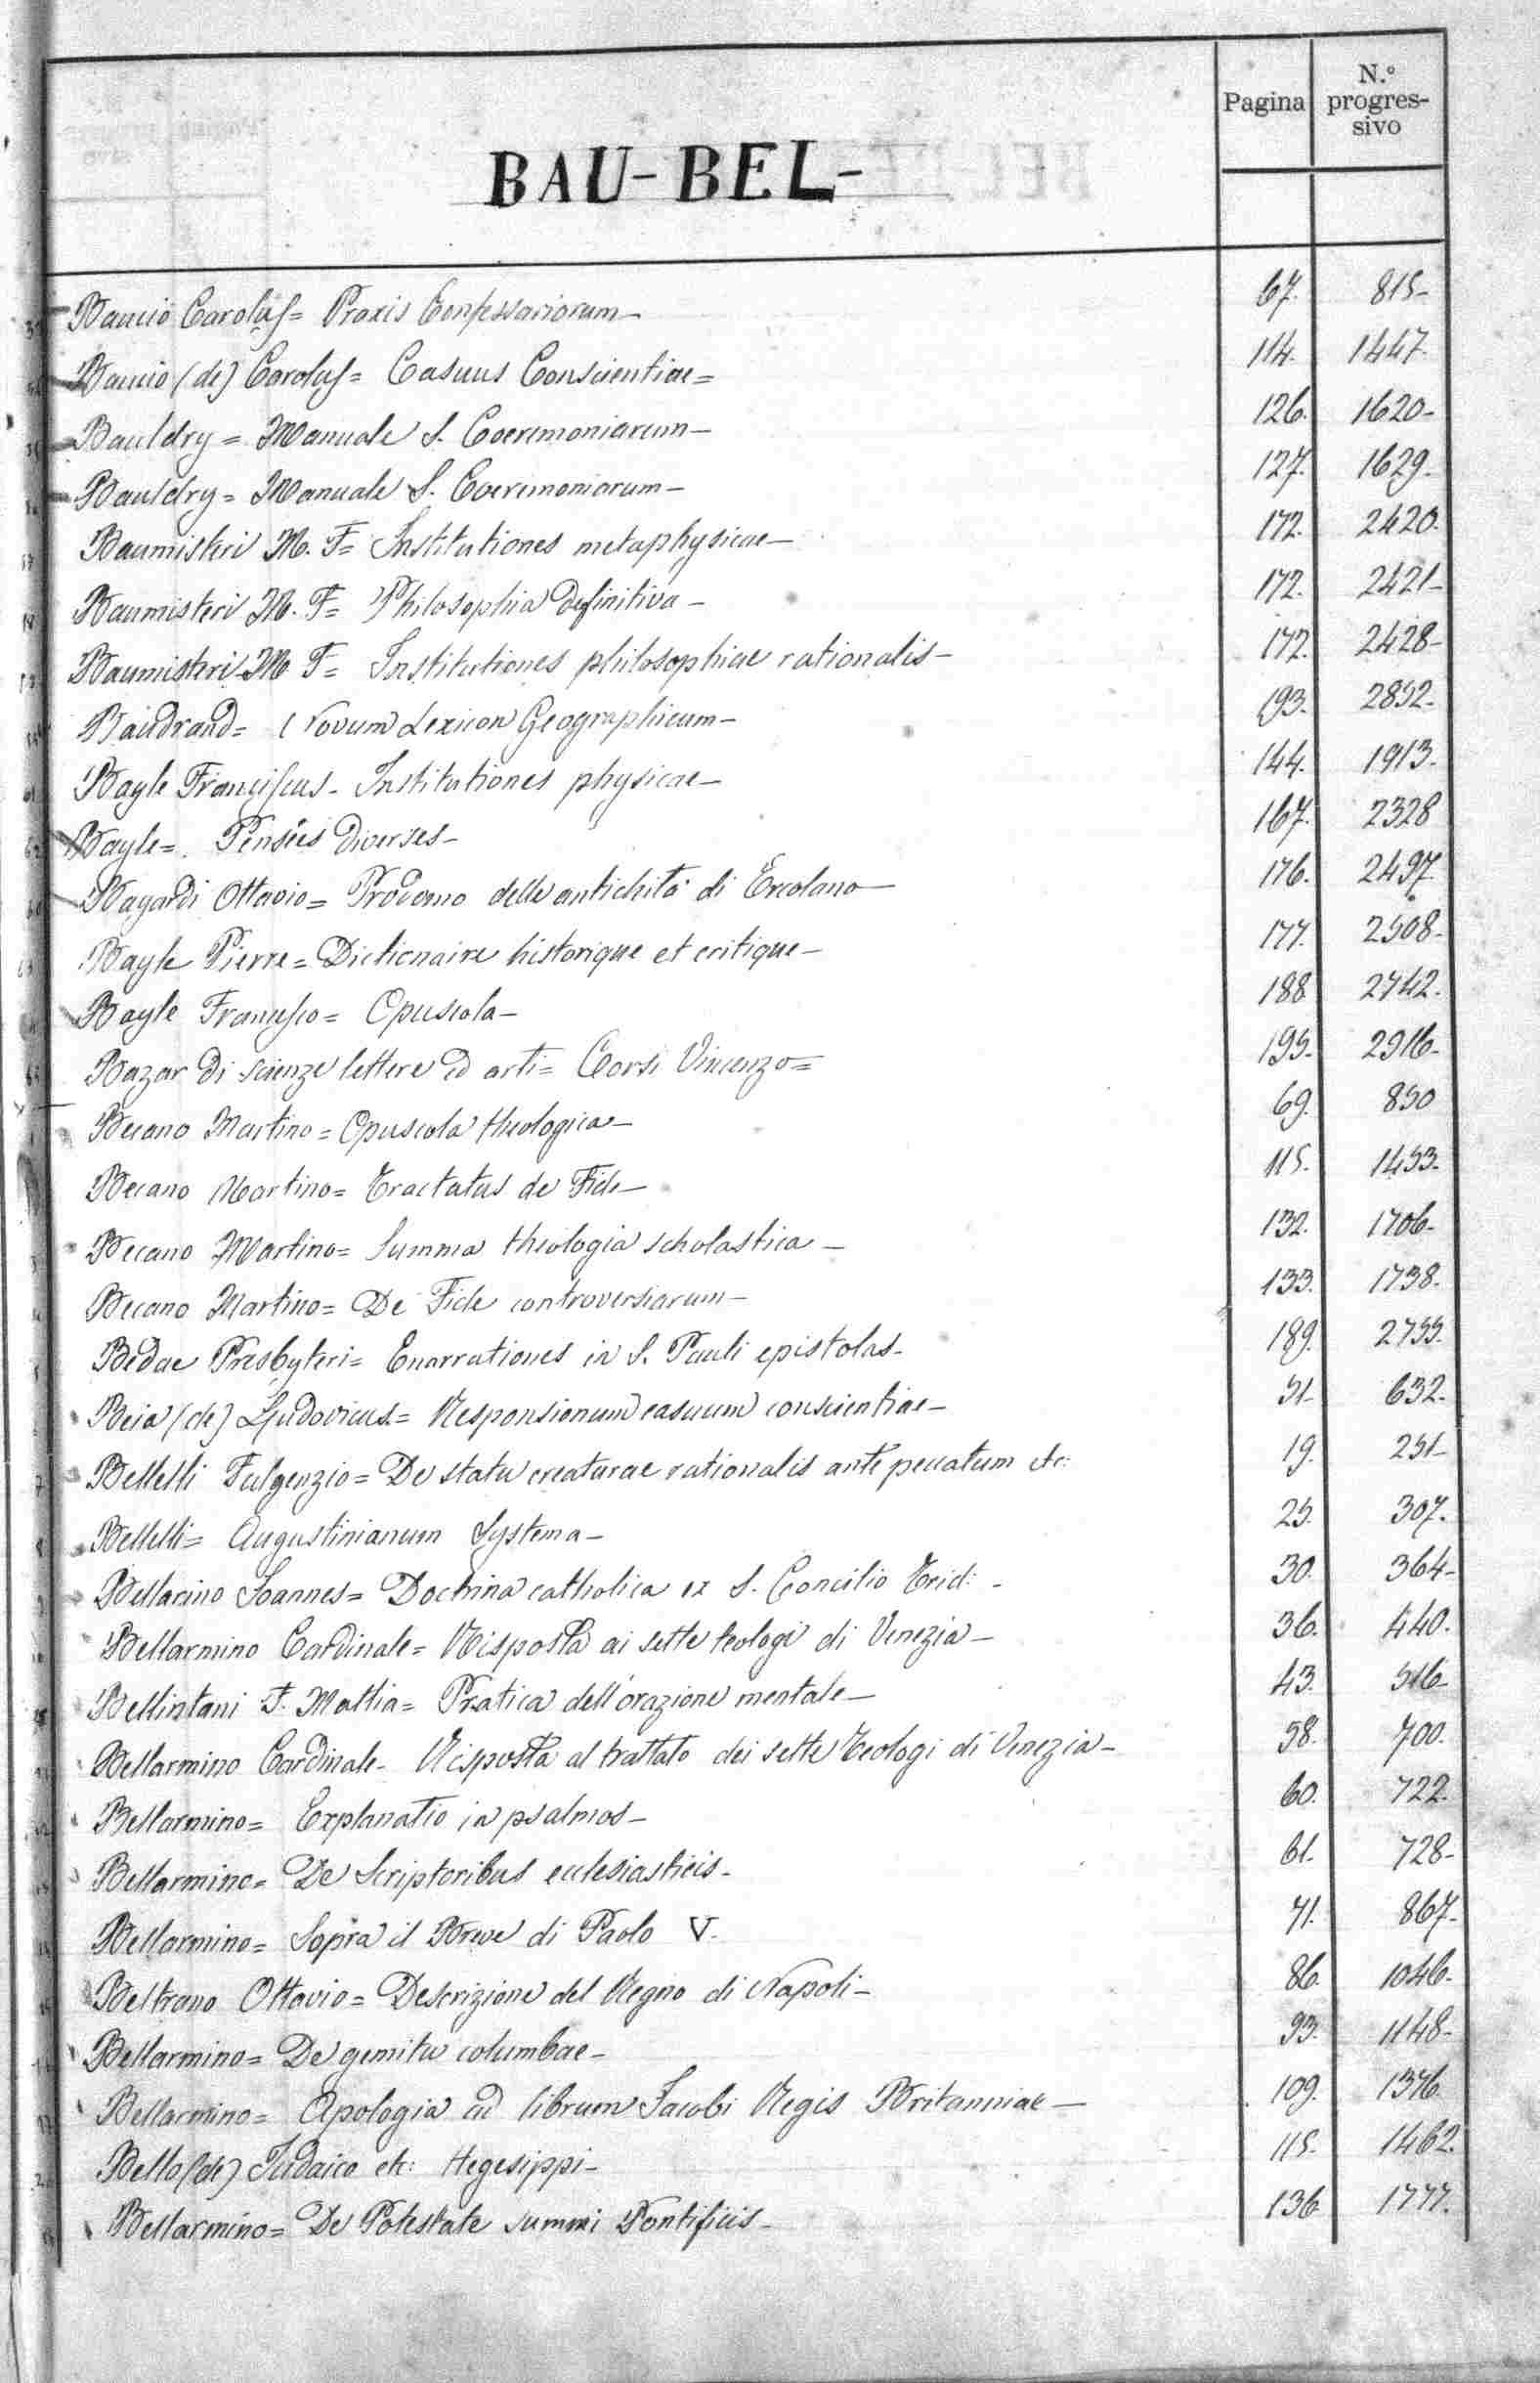 Pagina N.º progres-sivo
BAU-BEL-
Baucio Carolus= Praxis Confessariorum- 67. 815-
Baucio (de) Carolus= Casuus Conscientiae= 114. 1447.
Bauldry= Manuale S. Coeremoniarum- 126. 1620-
Bauldry= Manuale S. Coeremoniarum- 127. 1629.
Baumisteri M. F= Institutiones metaphysicae- 172. 2420.
Baumisteri M. F= Philosophia definitiva- 172. 2421-
Baumisteri M F= Institutiones philosophiae rationalis- 172. 2428-
Baudrand= Novum Lexicon Geographicum- 193. 2852-
Bayle Franciscus- Institutiones physicae- 144. 1913-
Bayle=. Pensées diverses- 167. 2328
Bayardi Ottavio= Prodomo delle antichità di Ercolano- 176. 2497.
Bayle Pierre= Dictionaire historique et critique- 177. 2508-
Bayle Francesco= Opuscola- 188 2742.
Bazar di scienze lettere ed arti= Corsi Vincenzo= 195- 2916-
Becano Martino= Opuscola theologica- 69. 850
Becano Martino= Tractatus de Fide- 115. 1453-
Becano Martino= Summa theologia scholastica- 132. 1706-
Becano Martino= De Fide controversiarum- 133. 1738-
Bedae Presbyteri= Enarrationes in S. Pauli epistolas- 189. 2755.
Beia (de) Ludovicus= Responsionum casuum conscientiae- 51- 632-
Bellelli Fulgenzio= De statu creaturae rationalis ante peccatum etc: 19. 251-
Bellelli= Augustinianum Systema- 25. 307.
Bellarino Joannes= Doctrina catholica ex S. Concilio Trid:- 30. 364-
Bellarmino Cardinale= Risposta ai sette teologi di Venezia- 36. 440.
Bellintani F. Mattia= Pratica dell'orazione mentale- 43. 516-
Bellarmino Cardinale- Risposta al trattato dei sette Teologi di Venezia- 58. 700.
Bellarmino= Explanatio in psalmos- 60. 722.
Bellarmino= De Scriptoribus ecclesiasticis- 61. 728-
Bellarmino= Sopra il Breve di Paolo V. 71. 867-
Beltrano Ottavio= Descrizione del Regno di Napoli- 86. 1046-
Bellarmino= De gemitu columbae- 93. 1148-
Bellarmino= Apologia ad librum Jacobi Regis Britanniae- 109. 1376.
Bello (de) Judaico etc: Hegesippi- 115. 1462.
Bellarmino= De Potestate summi Pontificis- 136 1777.